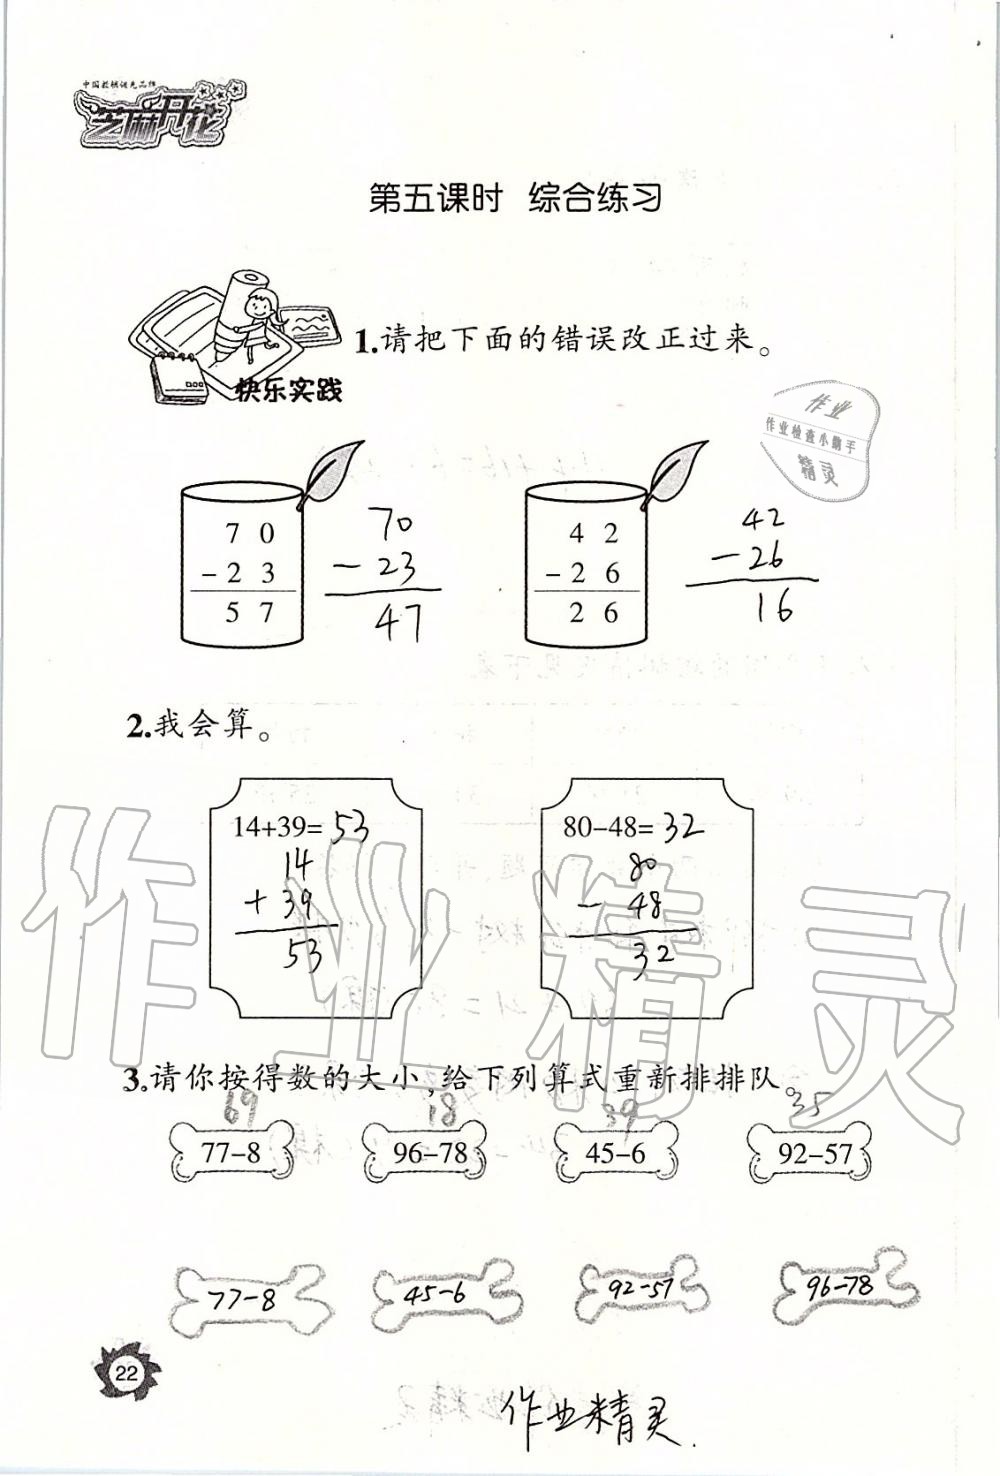 中国教辅领先品牌
芝麻开花
第五课时 综合练习
快乐实践
1.请把下面的错误改正过来。
作业
作业检查小助手
精灵
7 0
-2 3
5 7
70
-23
47
4 2
-2 6
2 6
42
-26
16
2.我会算。
14+39=53
14
+39
53
80-48=32
80
-48
32
3.请你按得数的大小,给下列算式重新排排队。
69 18 39 35
77-8 96-78 45-6 92-57
77-8 45-6 92-57 96-78
22
作业精灵
作业精灵